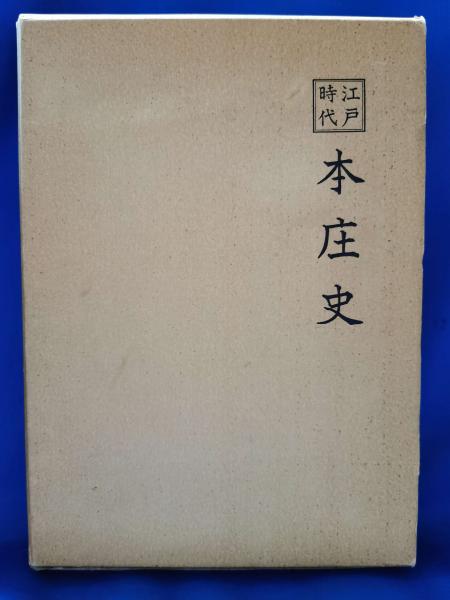 江戸
時代
本庄史